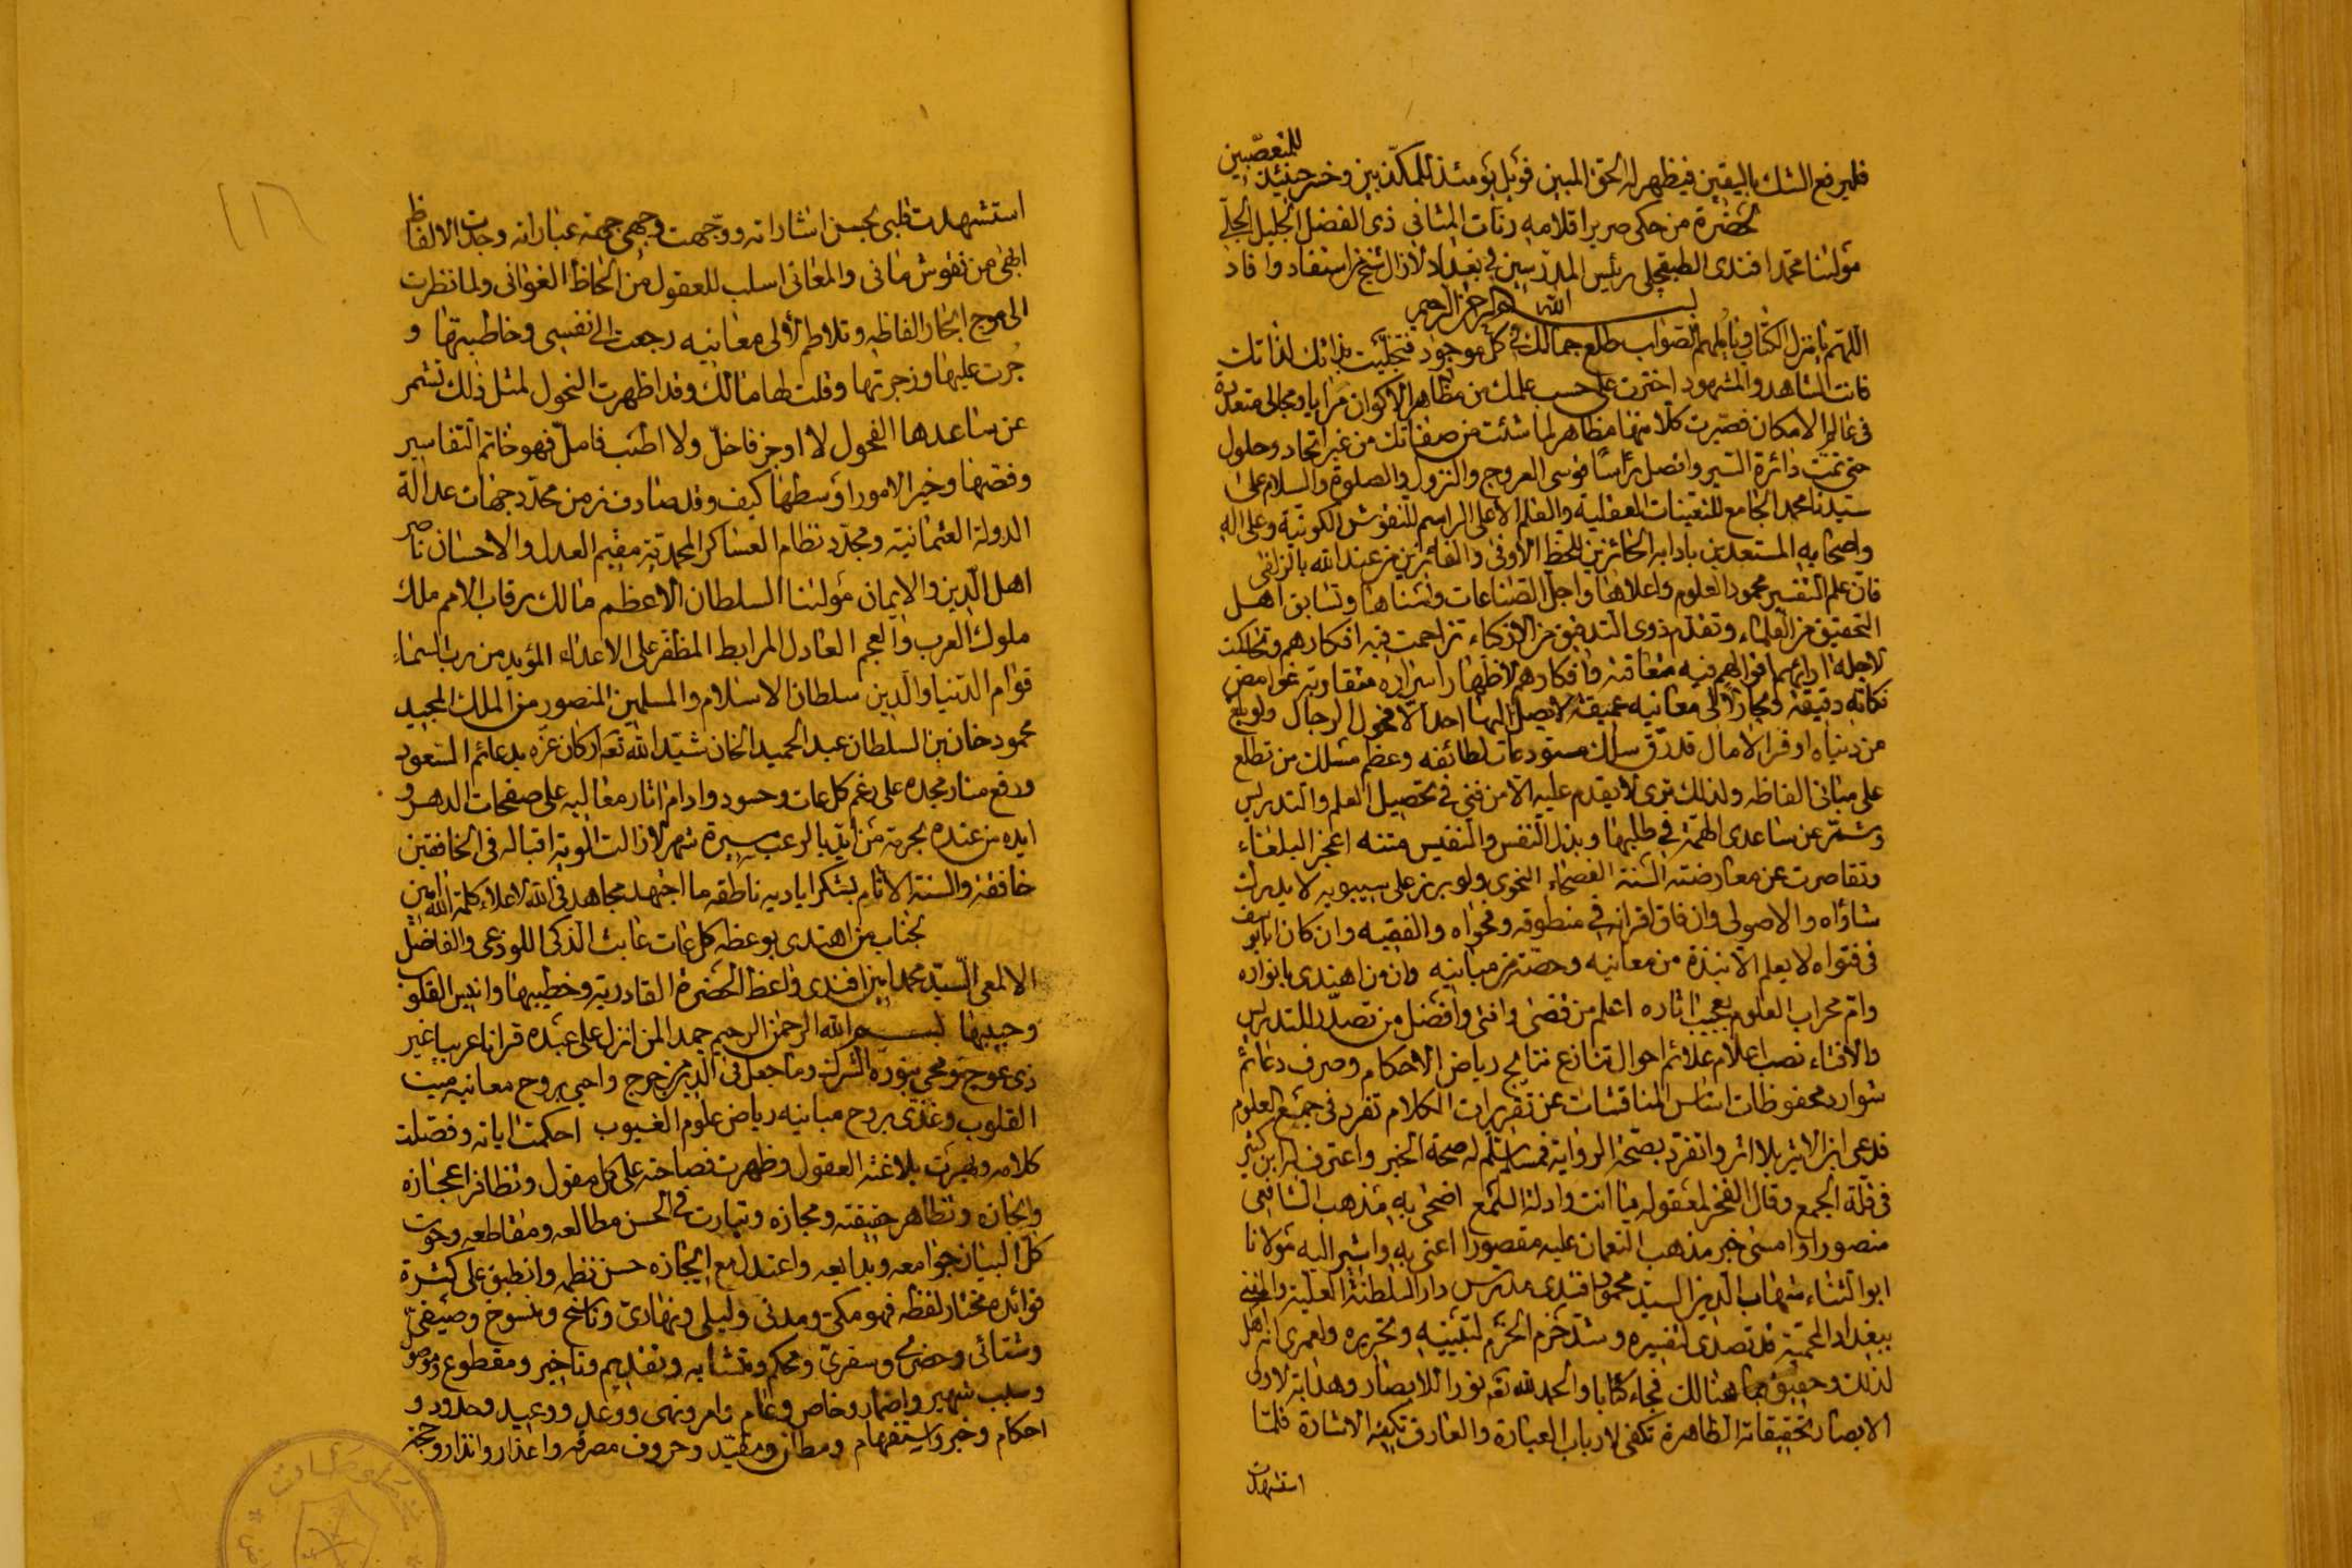 للمتعصبين
فليرفع الشك باليقين فيظهر له الحق المبين فويل يومئذ للمكذبين وخسر حينئذ
لحضرة من حكى صرير اقلامه رنات المثانى ذى الفضل الجليل الجلّى
مولٰنا محمد افندى الطبقچلى رئيس المدرّسين فى بغداد لازال شيخ من استفاد وافاد
بسم الله الرحمن الرحيم
اللّهم يا منزل الكتاب ويا ملهم الصواب طلع جمالك فى كل موجود فتجلّيت بذاتك لذاتك
فانت الشاهد والمشهود اخترت على حسب علمك من مظاهر الاكوان مرايا ومجالى متعددة
فى عالم الامكان فصيّرت كلا منها مظاهر لما شئت من صفاتك من غير اتحاد وحلول
حتى تمّت دائرة السير واتصل رأسا قوسى العروج والنزول والصلوة والسلام على
سيدنا محمد الجامع للتعينات العقلية والقلم الاعلى الراسم للنقوش الكونيّة وعلى اله
واصحابه المستعدين بادابه الحائزين للحظ الاوفى والفائزين من عند الله بالزلفى
فان علم التفسير محمود العلوم واعلاها واجل الصناعات واسناها وتسابق اهل
التحقيق من العلماء وتقدم ذوى التدقيق من الاذكياء تزاحمت فيه افكارهم وتحاكت
لاجله ارائهم اقوالهم فيه متعاقبه وافكارهم لاظهار اسراره متقاربه غوامض
نكاته دقيقة وبحار لآلى معانيه عميقة لا يصل اليها احد الا فحول الرجال ولو بلغ
من دنياه اوفر الامال قد رقّ سلك مستودعات لطائفه وعظم مسلك من تطلع
على مبانى الفاظه ولذلك ترى لا يقدم عليه الا من فنى فى تحصيل العلم والتدريس
وشمّر عن ساعدى الهمّة فى طلبها وبذل النفس والنفيس متنه اعجز البلغاء
وتقاصرت عن معارضته السنة الفصحاء النحوى ولو برز على سيبويه لا يدرك
شاؤاه والاصولى وان فاق اقرانه فى منطوقه وفحواه والفقيه وان كان ابا يوسف
فى فتواه لا يعلم الا نبذة من معانيه وحصّة من مبانيه وان من اهتدى بانواره
وامّ محراب العلوم بعجيب اثاره اعلم من قضى وافتى وافضل من تصدّر للتدريس
والافتاء نصب اعلام علائم احوال تنازع نتايج رياض الاحكام وصرف دعائم
شوارد محفوظات اساس المناقشات عن تقريرات الكلام تفرد فى جميع العلوم
فدعى ابن الاثير بلا اثر وانفرد بصحّة الرواية فمسلم سلّم له صحة الخبر واعترف له ابن كثير
فى قلّة الجمع وقال الفخر لمعقوله ما انت وادلة السّمع اضحى به مذهب الشافعى
منصورا وامسى خبر مذهب النعمان عليه مقصورا اعنى به واشير اليه مولانا
ابو الثناء شهاب الدين السيد محمود افندى مدرّس دار السلطنة العليّة والمفتى
ببغداد المحميّة قد تصدى لتفسيره وشدّ حزم الحزم لتبيينه وتحريره ولعمرى انه اهل
لذلك وحقيق بما هنالك فجاء كتابا والحمد لله تعم نورا للابصار وهداية لاولى
الابصار تحقيقاته الظاهرة تكفى لارباب العبارة والعارف تكفيه الاشارة فلمّا
استشهدت
استشهدت قلبى لحسن اشاراته ووجّهت وجهى جهة عباراته وجدت الالفاظ
ابهى من نقوش مانى والمعانى اسلب للعقول من الحاظ الغوانى ولما نظرت
الى موج ابحار الفاظه وتلاطم لآلى معانيه رجعت الى نفسى وخاطبتها و
جرت عليها وزجرتها وقلت لها مالك وقد اظهرت النحول لمثل ذلك تشمر
عن ساعدها الفحول لا اوجز فاخلّ ولا اطنب فاملّ فهو خاتم التفاسير
وفصّها وخير الامور اوسطها كيف وقد صادف زمن محدّد جهات عدالة
الدولة العثمانية ومجدّد نظام العساكر المحمديّة مقيم العدل والاحسان ناصر
اهل الدين والايمان مولٰنا السلطان الاعظم مالك رقاب الامم ملك
ملوك العرب والعجم العادل المرابط المظفر على الاعداء المؤيد من رب السماء
قوام الدنيا والدين سلطان الاسلام والمسلمين المنصور من الملك المجيد
محمود خان بن السلطان عبد الحميد الخان شيّد الله تعه اركان عزّه بدعائم السعود
ورفع منار مجده على رغم كل عات وحسود وادام اثار معاليه على صفحات الدهر و
ايده من عنده بحرمة من ايّد بالرعب مسيرة شهر لازالت الوية اقباله فى الخافقين
خافقة والسنة الانام بشكر اياديه ناطقه ما اجتهد مجاهد فى الله لاعلاء كلمة الله امين
لجناب من اهتدى بوعظه كل عات عابث الذكى اللوذعى والفاضل
الالمعى السيّد محمد امين افندى واعظ الحضرة القادرية وخطيبها وانيس القلوب
وحبيبها بسم الله الرحمن الرحيم حمدا لمن انزل على عبده قرانا عربيا غير
ذى عوج ومحى بنوره الشرك وما جعل فى الدين من حرج واحيى بروح معانيه ميت
القلوب وغذى بروح مبانيه رياض علوم الغيوب احكمت اياته وفصّلت
كلامه وبهرت بلاغته العقول وظهرت فصاحته على كل مقول وتظافر اعجازه
وايجازه وتظاهر حقيقته ومجازه وتبارت فى الحسن مطالعه ومقاطعه وحوت
كل البيان جوامعه وبدايعه واعتدل مع ايجازه حسن نظمه وانطبق على كثرة
فوائده مختار لفظه فهو مكى ومدنى وليلى ونهارى وناسخ ومنسوخ وصيفى
وشتائى وحضرى وسفرى ومحكم ومتشابه وتقديم وتاخير ومقطوع وموصول
وسبب شهير واضمار وخاص وعام وامر ونهى ووعد ووعيد وحدود و
احكام وخبر واستفهام ومطلق ومقيّد وحروف مصرفه واعذار وانذار وحجج